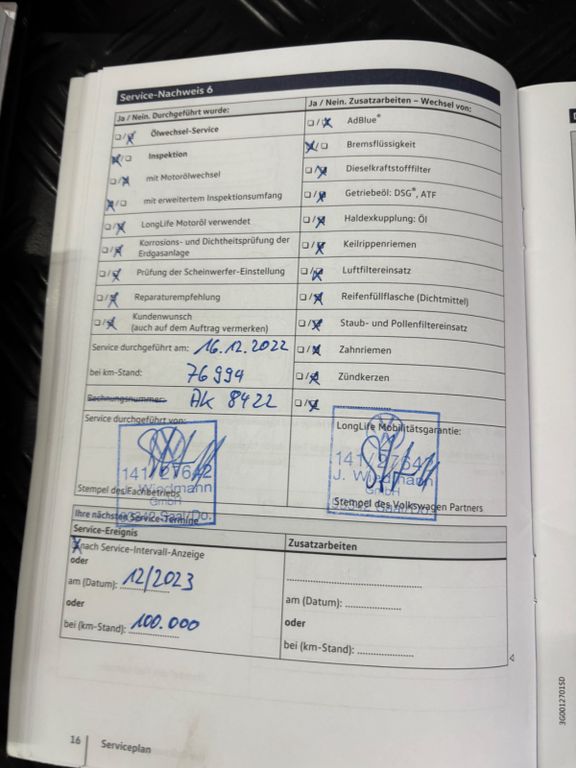 Service-Nachweis 6
Ja / Nein. Durchgeführt wurde:
❏ / ☒ Ölwechsel-Service
☒ / ❏ Inspektion
❏ / ☒ mit Motorölwechsel
☒ / ❏ mit erweitertem Inspektionsumfang
❏ / ☒ LongLife Motoröl verwendet
❏ / ☒ Korrosions- und Dichtheitsprüfung der
Erdgasanlage
❏ / ☒ Prüfung der Scheinwerfer-Einstellung
❏ / ☒ Reparaturempfehlung
❏ / ☒ Kundenwunsch
(auch auf dem Auftrag vermerken)
Service durchgeführt am: 16.12.2022
bei km-Stand: 76 994
Rechnungsnummer: AK 8422
Service durchgeführt von:
141/27642
J. Wiedmann
GmbH
Saal/Do.
Stempel des Fachbetriebs
Ja / Nein. Zusatzarbeiten – Wechsel von:
❏ / ☒ AdBlue®
☒ / ❏ Bremsflüssigkeit
❏ / ☒ Dieselkraftstofffilter
❏ / ☒ Getriebeöl: DSG®, ATF
❏ / ☒ Haldexkupplung: Öl
❏ / ☒ Keilrippenriemen
❏ / ☒ Luftfiltereinsatz
❏ / ☒ Reifenfüllflasche (Dichtmittel)
❏ / ☒ Staub- und Pollenfiltereinsatz
❏ / ☒ Zahnriemen
❏ / ☒ Zündkerzen
❏ / ☒
LongLife Mobilitätsgarantie:
141/27642
J. Wiedmann
GmbH
Saal/Do.
Stempel des Volkswagen Partners
Ihre nächsten Service-Termine
Service-Ereignis
☒ nach Service-Intervall-Anzeige
oder
am (Datum): 12/2023
oder
bei (km-Stand): 100.000
Zusatzarbeiten
am (Datum):
oder
bei (km-Stand):
16 Serviceplan
3G0012701SD